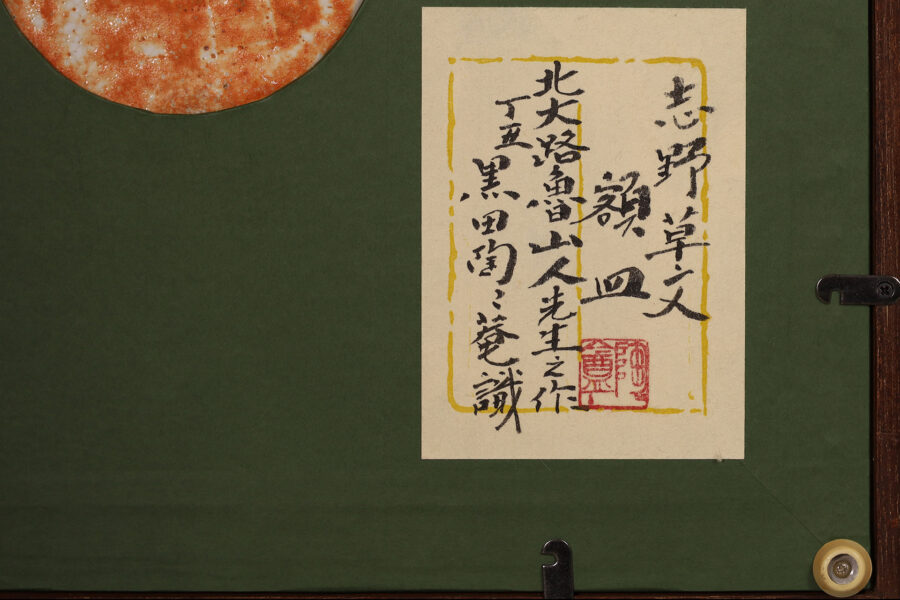 志野草文
額皿
北大路魯山人先生之作
丁丑
黒田陶々菴識